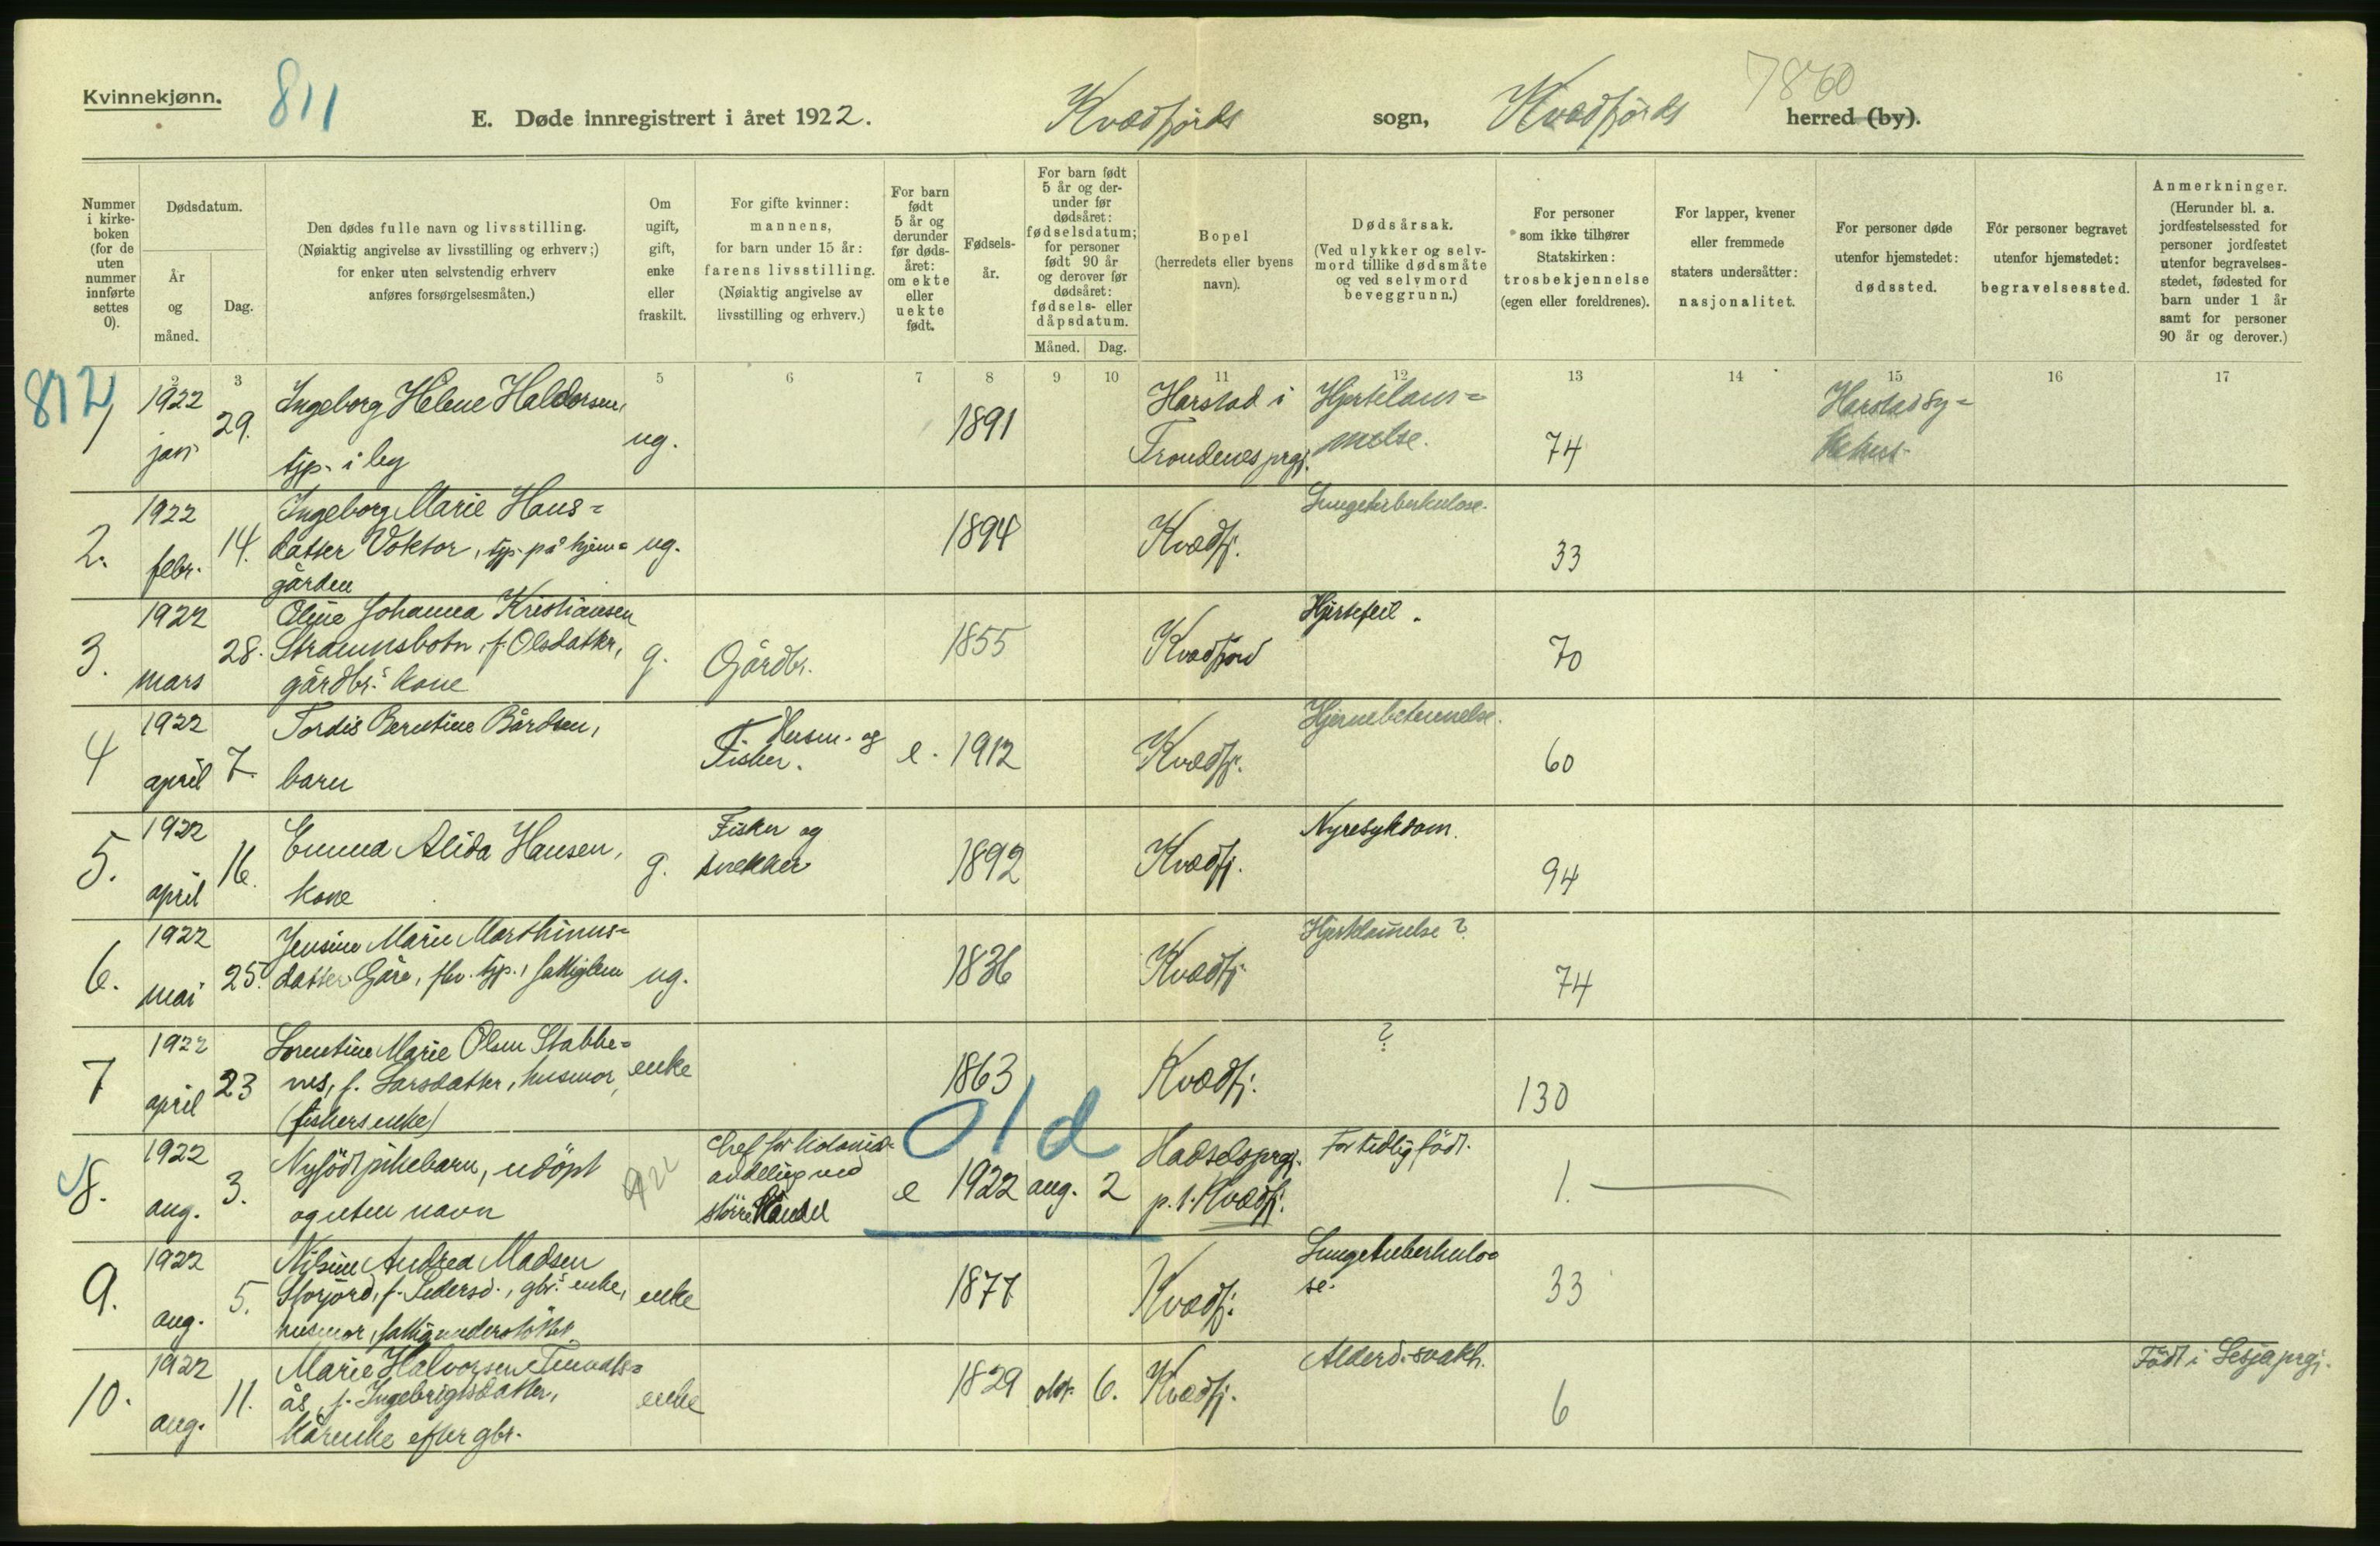 Kvinnekjønn.
811
7860
E. Døde innregistrert i året 1922.
Kvædfjords sogn, Kvædfjords herred (by).
Nummer i kirkeboken (for de uten nummer innførte settes 0).
Dødsdatum.
År og måned.
Dag.
Den dødes fulle navn og livsstilling.
(Nøiaktig angivelse av livsstilling og erhverv;)
for enker uten selvstendig erhverv
anføres forsørgelsesmåten.)
Om ugift, gift, enke eller fraskilt.
For gifte kvinner: mannens, for barn under 15 år: farens livsstilling. (Nøiaktig angivelse av livsstilling og erhverv.)
For barn født 5 år og derunder før dødsåret: om ekte eller uekte født.
Fødselsår.
For barn født 5 år og derunder før dødsåret: fødselsdatum; for personer født 90 år og derover før dødsåret: fødsels- eller dåpsdatum.
Måned. Dag.
Bopel (herredets eller byens navn).
Dødsårsak. (Ved ulykker og selvmord tillike dødsmåte og ved selvmord beveggrunn.)
For personer som ikke tilhører Statskirken: trosbekjennelse (egen eller foreldrenes).
For lapper, kvener eller fremmede staters undersåtter: nasjonalitet.
For personer døde utenfor hjemstedet: dødssted.
For personer begravet utenfor hjemstedet: begravelsessted.
Anmerkninger. (Herunder bl. a. jordfestelsessted for personer jordfestet utenfor begravelsesstedet, fødested for barn under 1 år samt for personer 90 år og derover.)
2 3 5 6 7 8 9 10 11 12 13 14 15 16 17
812
1 1922 jan 29. Ingeborg Helene Haldorsen, tjp. i by ug. 1891 Harstad i Trondenes prgj. Hjertelammelse. 74 Harstad sykehus
2. 1922 febr. 14. Ingeborg Marie Hansdatter Voktor, tjp. på hjemgården ug. 1894 Kvædfj. Lungetuberkulose. 33
3. 1922 mars 28. Oline Johanna Kristiansen Straumsbotn, f. Olsdatter, gårdbr.s kone g. Gårdbr. 1855 Kvædfjord Hjertefeil. 70
4 1922 april 7. Tordis Berntine Bårdsen, barn Husm. og Fisker. e. 1912 Kvædfj. Hjernebetennelse. 60
5. 1922 april 16. Emma Alida Hansen, kone g. Fisker og snekker 1892 Kvædfj. Nyresykdom. 94
6. 1922 mai 25. Jensine Marie Marthinusdatter Gåre, fhv. tjp., fattiglem ug. 1836 Kvædfj. Hjertelammelse? 74
7 1922 april 23 Lorentine Marie Olsen Stabbenes, f. Larsdatter, husmor, (fiskersenke) enke 1863 Kvædfj. ? 130
Old
8. 1922 aug. 3. Nyfödt pikebarn, udöpt og uten navn Chef for kolonialavdeling ved större Handel e 1922 aug. 2 Hadsels prgj. p.t. Kvædfj. For tidlig födt. 1.
9. 1922 aug. 5. Nilsine Andrea Madsen Storjord, f. Pedersd., gbr.s enke, husmor, fattigunderstöttet enke 1877 Kvædfj. Lungetuberkulose. 33
10. 1922 aug. 11. Marie Halvorsen ås, f. Ingebrigtsdatter, kårenke efter gbr. enke 1829 okt. 6. Kvædfj. Alderd.svakh. 6 Födt i Lesja prgj.